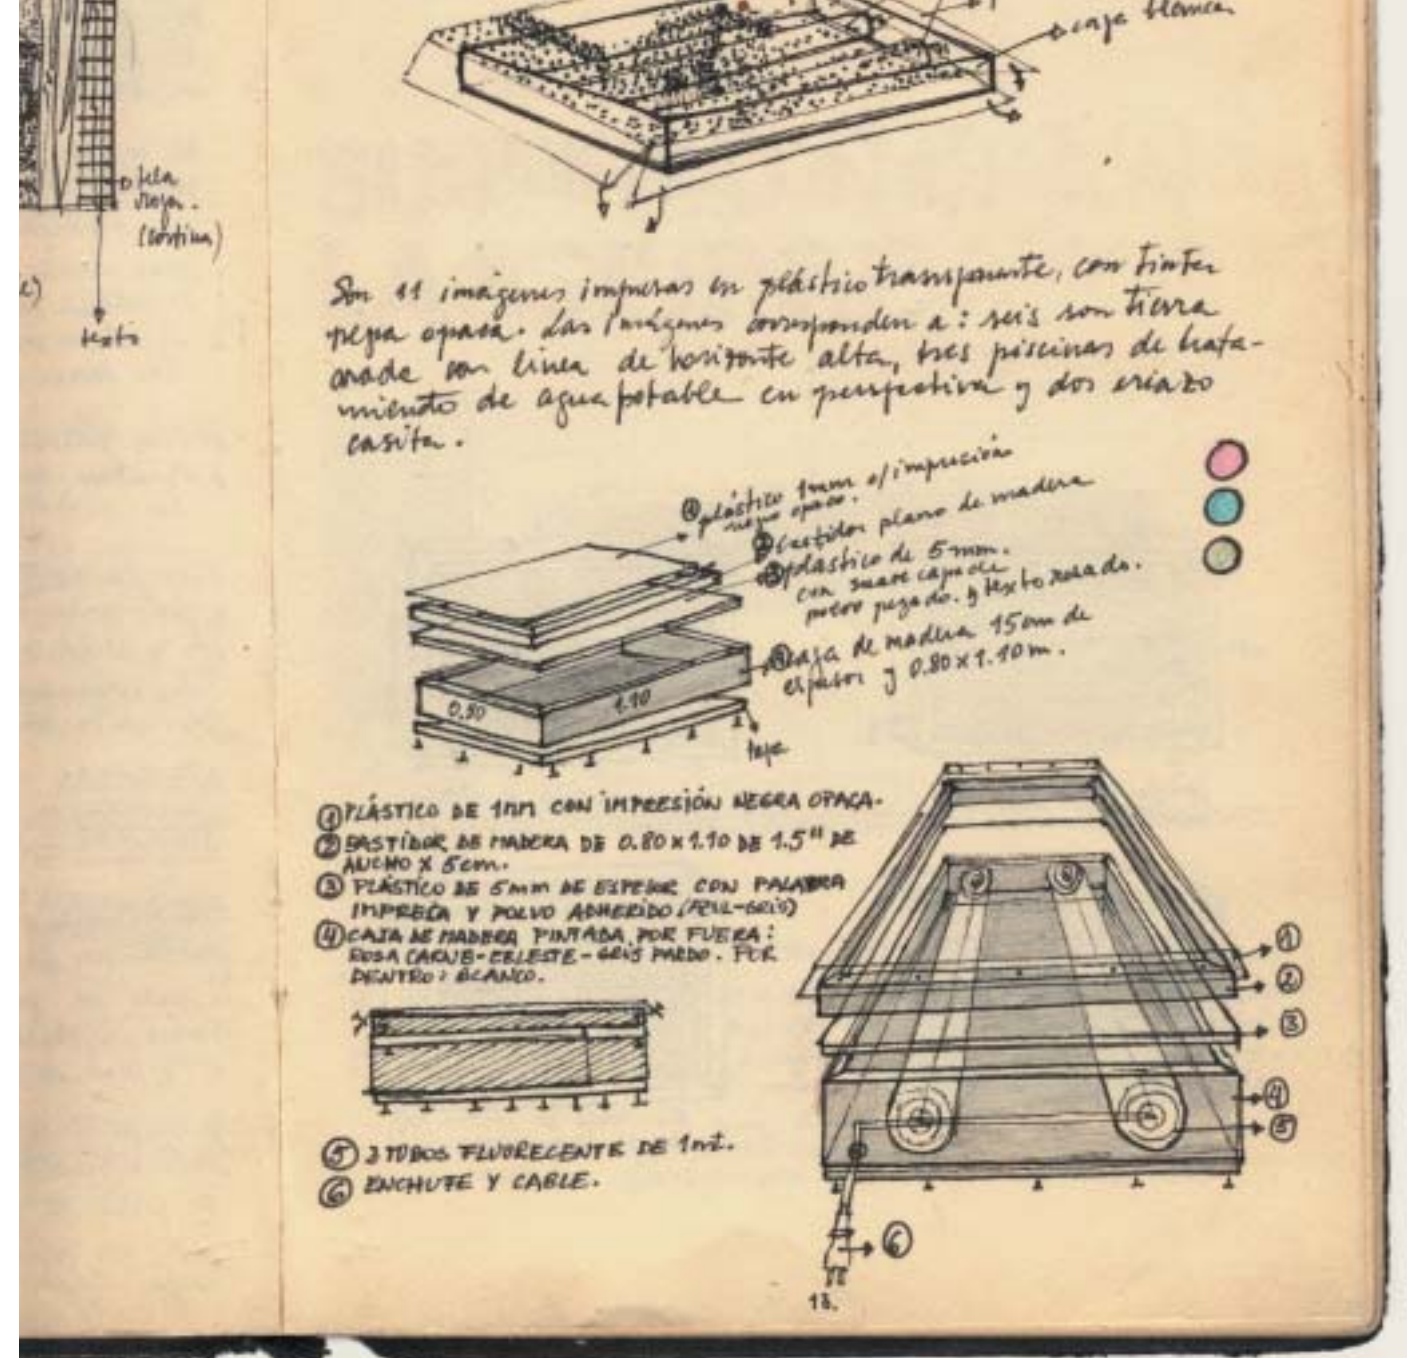 caja blanca
tela
roja.
(cortina)
texto
Son 11 imágenes impresas en plástico transparente, con tinta
negra opaca. Las imágenes corresponden a: seis son tierra
arada con línea de horizonte alta, tres piscinas de trata-
miento de agua potable en perspectiva y dos eriazo
casita.
① plástico 1mm c/impresión
negro opaco.
② bastidor plano de madera
③ plástico de 5mm.
con suave capa de
polvo pegado. y texto rosado.
④ caja de madera 15cm de
espesor y 0.80x1.10m.
0.80
1.10
tapa
① PLÁSTICO DE 1mm CON IMPRESIÓN NEGRA OPACA.
② BASTIDOR DE MADERA DE 0.80x1.10 DE 1.5" DE
ANCHO X 5cm.
③ PLÁSTICO DE 5mm DE ESPESOR CON PALABRA
IMPRESA Y POLVO ADHERIDO
④ CAJA DE MADERA PINTADA POR FUERA:
ROSA CARNE-CELESTE-GRIS PARDO. POR
DENTRO: BLANCO.
①
②
③
④
⑤
⑤ TUBOS FLUORECENTE DE 1mt.
⑥ ENCHUFE Y CABLE.
⑥
13.